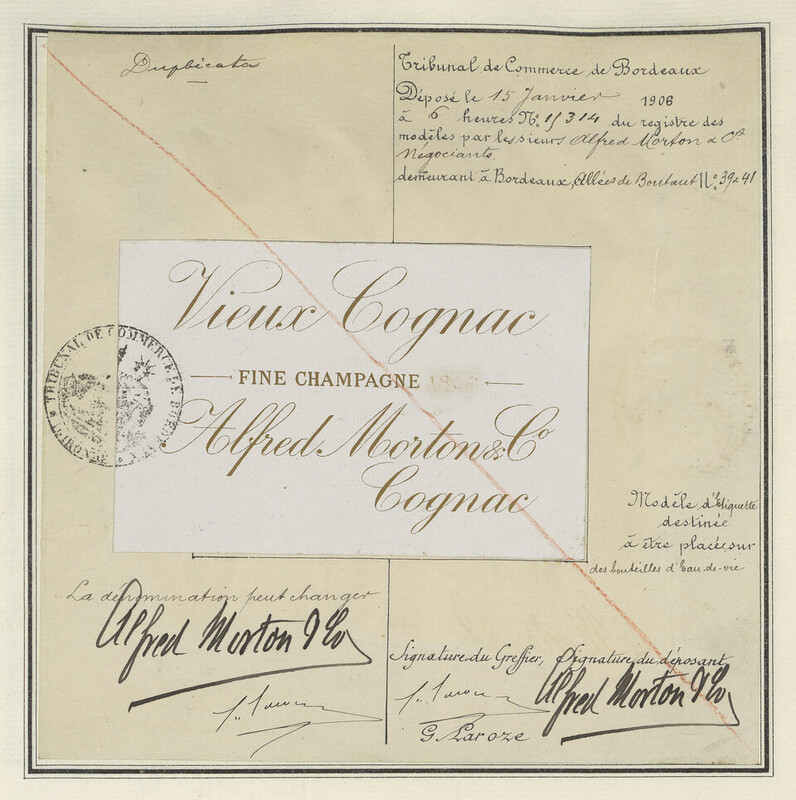 Duplicata
Tribunal de Commerce de Bordeaux
Déposé le 15 Janvier 1906
à 6 heures No. 15314 du registre des
modèles par les sieurs Alfred Morton & Co.
Négociants
demeurant à Bordeaux, Allées de Boutaut No. 39 & 41
Vieux Cognac
FINE CHAMPAGNE
Alfred Morton & Co
Cognac
TRIBUNAL DE COMMERCE DE BORDEAUX
GIRONDE
Modèle d'Etiquette
destinée
à être placée sur
des bouteilles d'Eau-de-vie
La dénomination peut changer
Alfred Morton & Co
Signature du Greffier, Signature du déposant
Alfred Morton & Co
G. Laroze